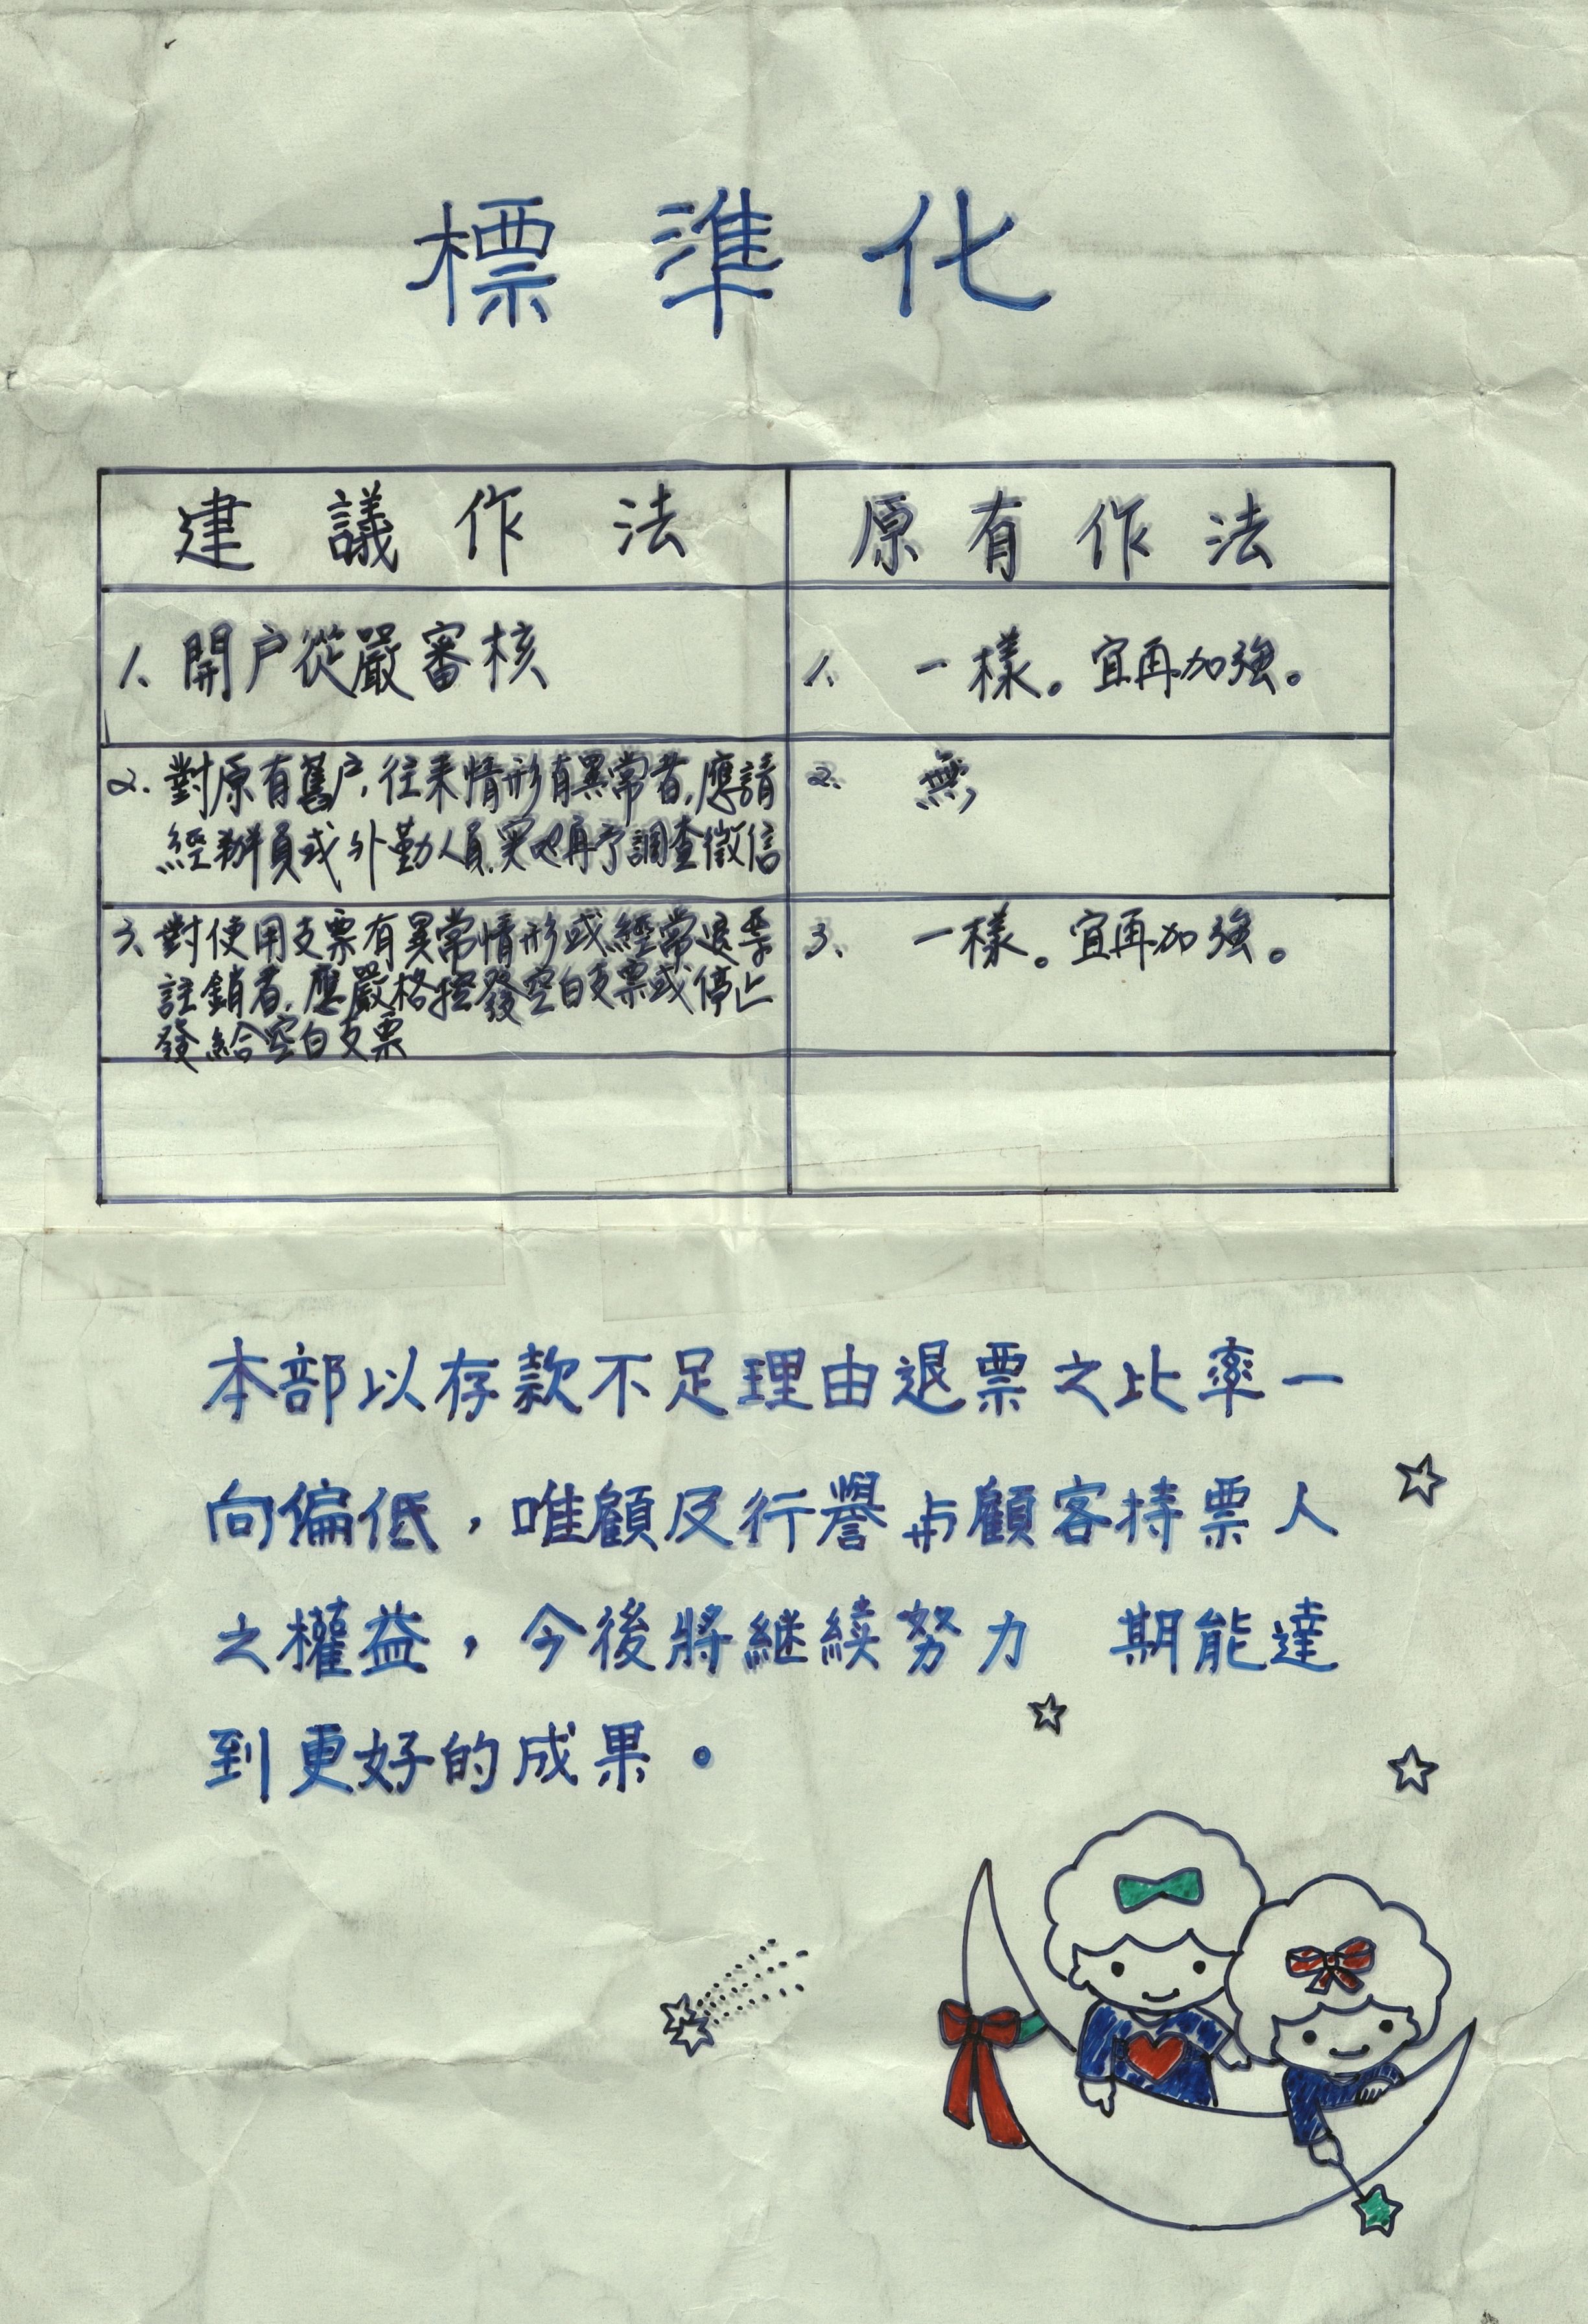 標準化
建議作法 原有作法
1、開户從嚴審核 1、一樣。宜再加強。
2、對原有舊户,往來情形有異常者,應請 2、無
經辦員或外勤人員,實地再予調查徵信
3、對使用支票有異常情形或經常退票 3、一樣。宜再加強。
註銷者,應嚴格控發空白支票或停止
發給空白支票
本部以存款不足理由退票之比率一
向偏低，唯顧及行譽与顧客持票人
之權益，今後將継続努力 期能達
到更好的成果。